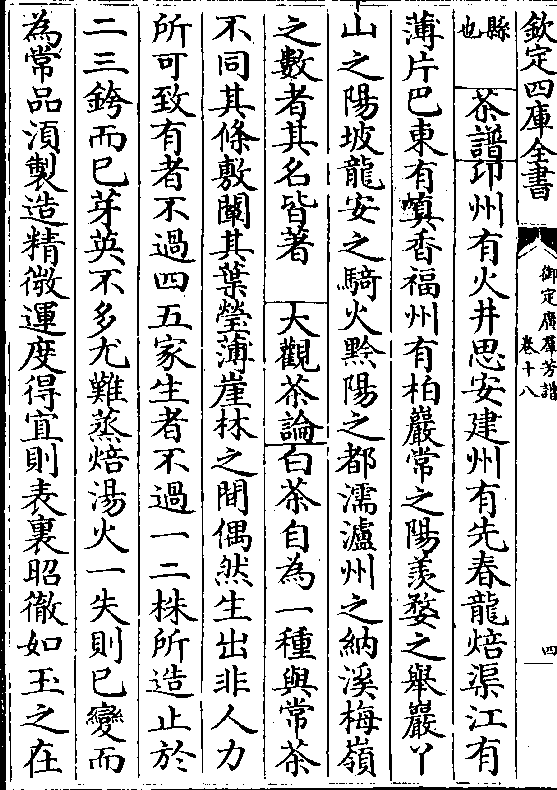 欽定四庫全書
御定廣羣芳譜
卷十八
四
縣也
茶譜卭州有火井思安建州有先春龍焙渠江有
薄片巴東有真香福州有柏巖常之陽羨婺之舉巖丫
山之陽坡龍安之騎火黔陽之都濡瀘州之納溪梅嶺
之數者其名皆著 大觀茶論白茶自為一種與常茶
不同其條敷闡其葉瑩薄崖林之閒偶然生出非人力
所可致有者不過四五家生者不過一二株所造止於
二三銙而已芽英不多尤難蒸焙湯火一失則已變而
為常品湏製造精微運度得宜則表裏昭徹如玉之在